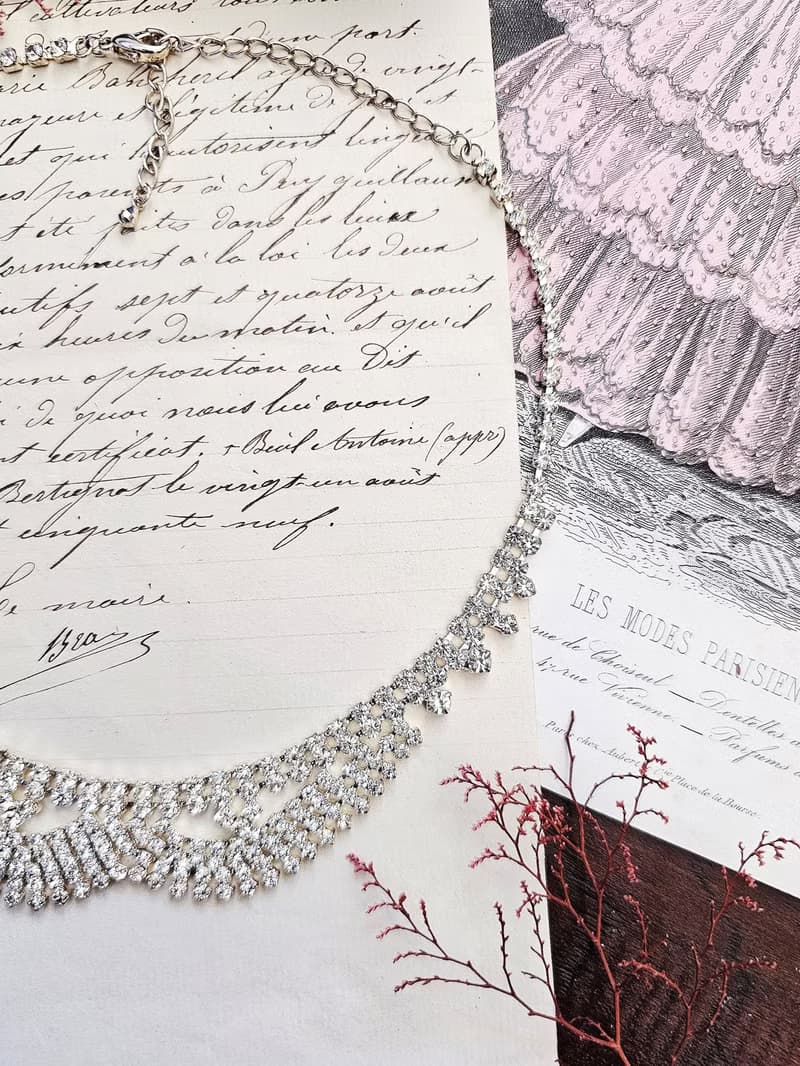 cultivateurs
d'un port.
agé de vingt-
mayeure et légitime de et
et qui autorisent
parents à Puy guillaume
t été faites dans les lieux
formément à la loi les deux
sept et quatorze août
ix heures du matin. et qu'il
une opposition au Dit
i de quoi nous lui avons
nt certificat. + Antoine (appr)
Bertignat le vingt-un août
t cinquante neuf.
le maire.
LES MODES PARISIEN
rue de Choiseul. — Dentelles
47, rue Vivienne. — Parfums
chez Aubert Place de la Bourse.